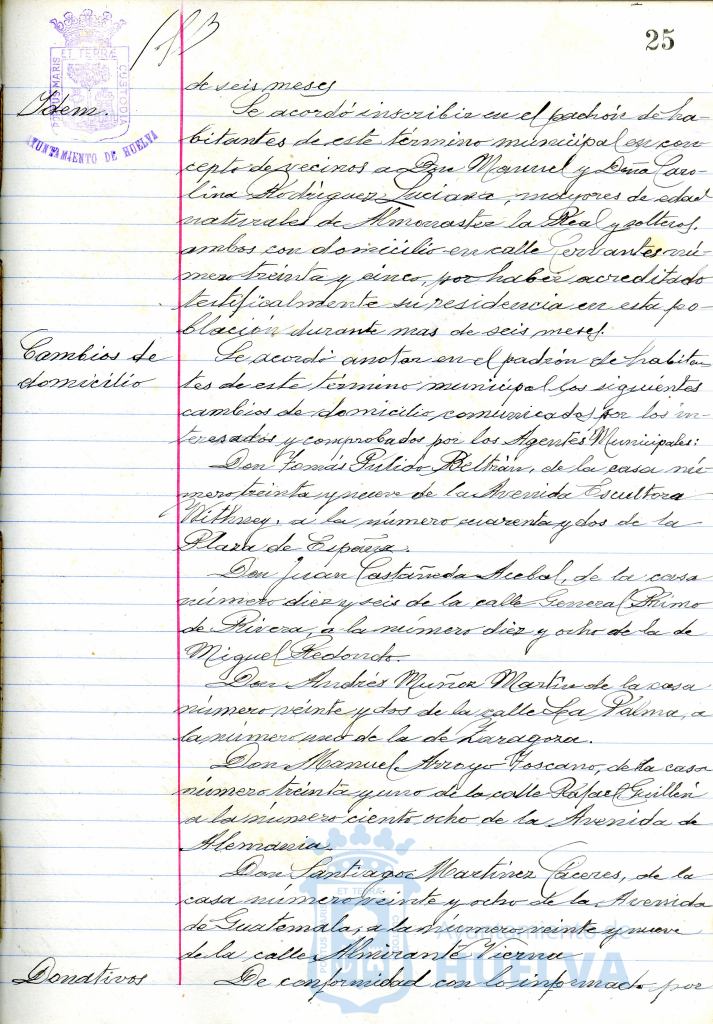 25
PORTUS MARIS ET TERRAE CUSTODIA
AYUNTAMIENTO DE HUELVA
de seis meses
Idem.
Se acordó inscribir en el padrón de ha-
bitantes de este término municipal en con-
cepto de vecinos a Don Manuel y Doña Caro-
lina Rodríguez Luciana, mayores de edad
naturales de Almonaster la Real y solteros.
ambos con domicilio en calle Cervantes nú-
mero treinta y cinco, por haber acreditado
testificalmente su residencia en esta po-
blación durante mas de seis meses.
Cambios de
domicilio
Se acordó anotar en el padrón de habitan-
tes de este término municipal los siguientes
cambios de domicilio, comunicados por los in-
teresados y comprobados por los Agentes Municipales:
Don Tomás Pulido Beltrán, de la casa nú-
mero treinta y nueve de la Avenida Escultora
Withney, a la número cuarenta y dos de la
Plaza de España.
Don Juan Castañeda Acebal, de la casa
número diez y seis de la calle General Primo
de Rivera, a la número diez y ocho de la de
Miguel Redondo.
Don Andrés Muñoz Martín de la casa
número veinte y dos de la calle La Palma, a
la número uno de la de Zaragoza.
Don Manuel Arroyo Toscano, de la casa
número treinta y uno de la calle Rafael Guillén
a la número ciento ocho de la Avenida de
Alemania.
Don Santiago Martínez Cáceres, de la
casa número veinte y ocho de la Avenida
de Guatemala, a la número veinte y nueve
de la calle Almirante Vierna
Donativos
De conformidad con lo informado por
PORTUS MARIS ET TERRAE CUSTODIA
Ayuntamiento de
HUELVA